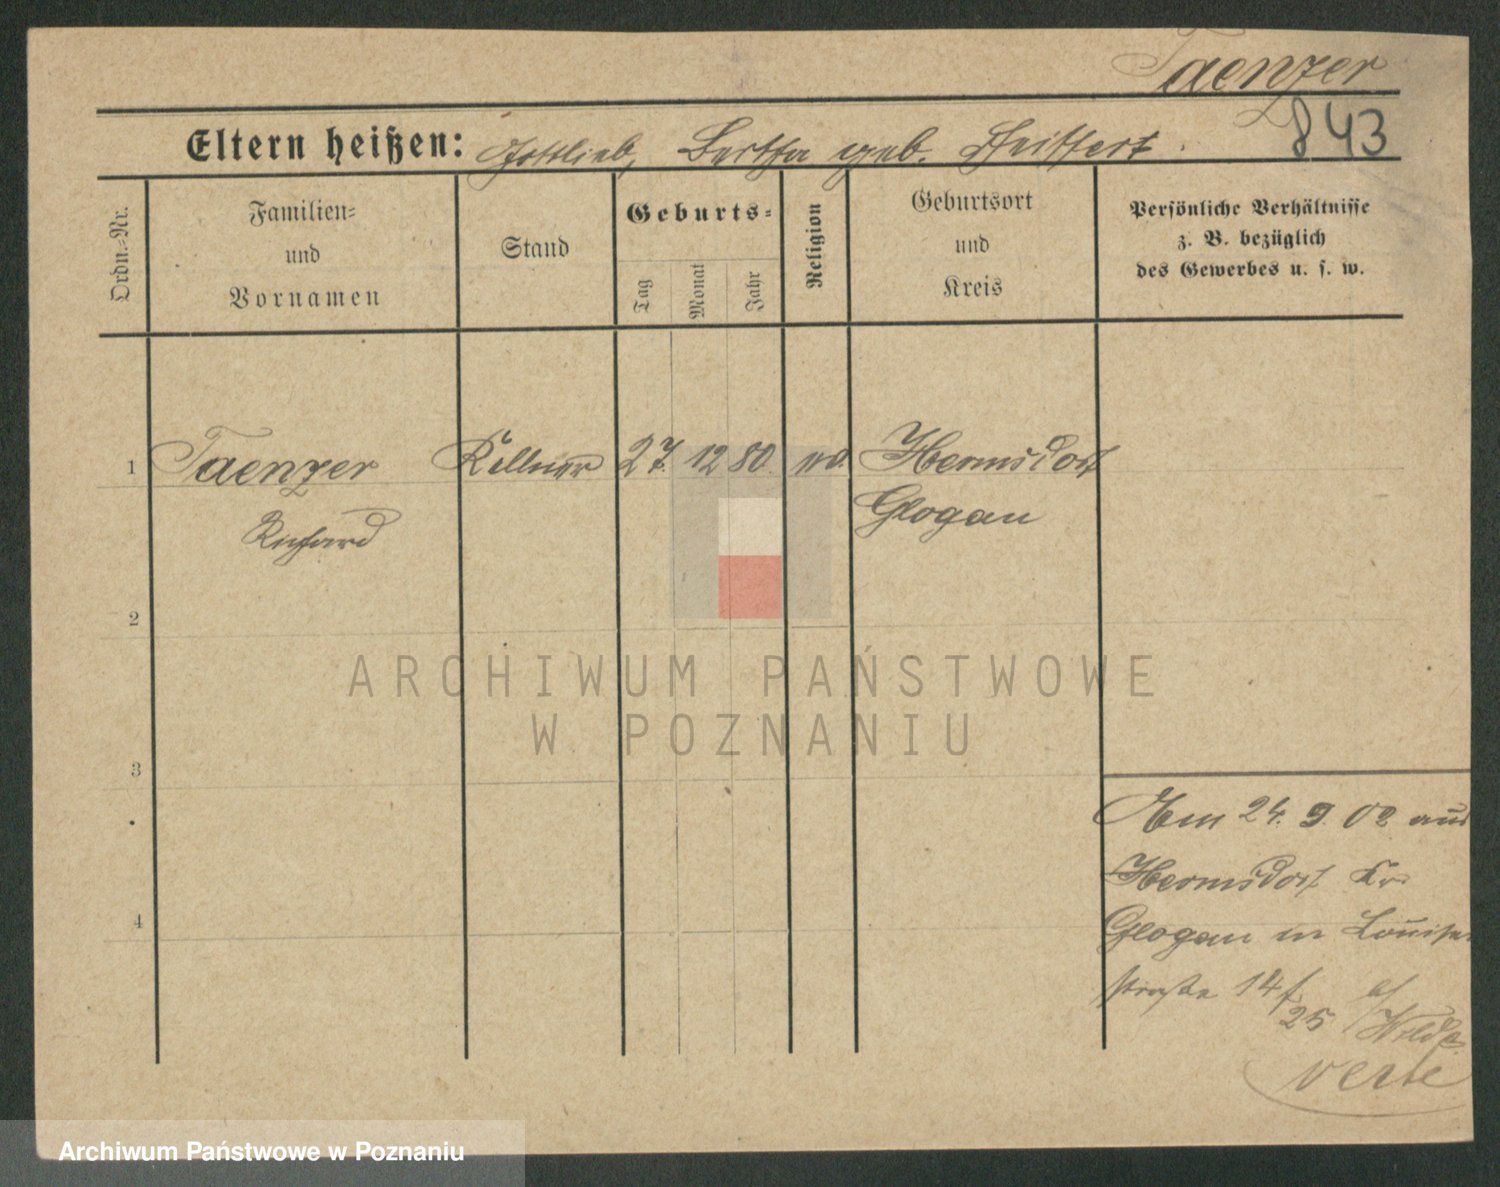 Taenzer
843
Eltern heißen: Gottlieb, Bertha geb. Pfeiffert.
Ordn.=Nr.
Familien=
und
Vornamen
Stand
Geburts=
Tag
Monat
Jahr
Religion
Geburtsort
und
Kreis
Persönliche Verhältnisse
z. B. bezüglich
des Gewerbes u. s. w.
1 Taenzer Kellner 27. 12 80. Hermsdorf
Richard Glogau
2
3
4
Am 24. 9. 02 aus
Hermsdorf Kr.
Glogau in Louisen
straße 14/
25
verte
ARCHIWUM PAŃSTWOWE
W POZNANIU
Archiwum Państwowe w Poznaniu